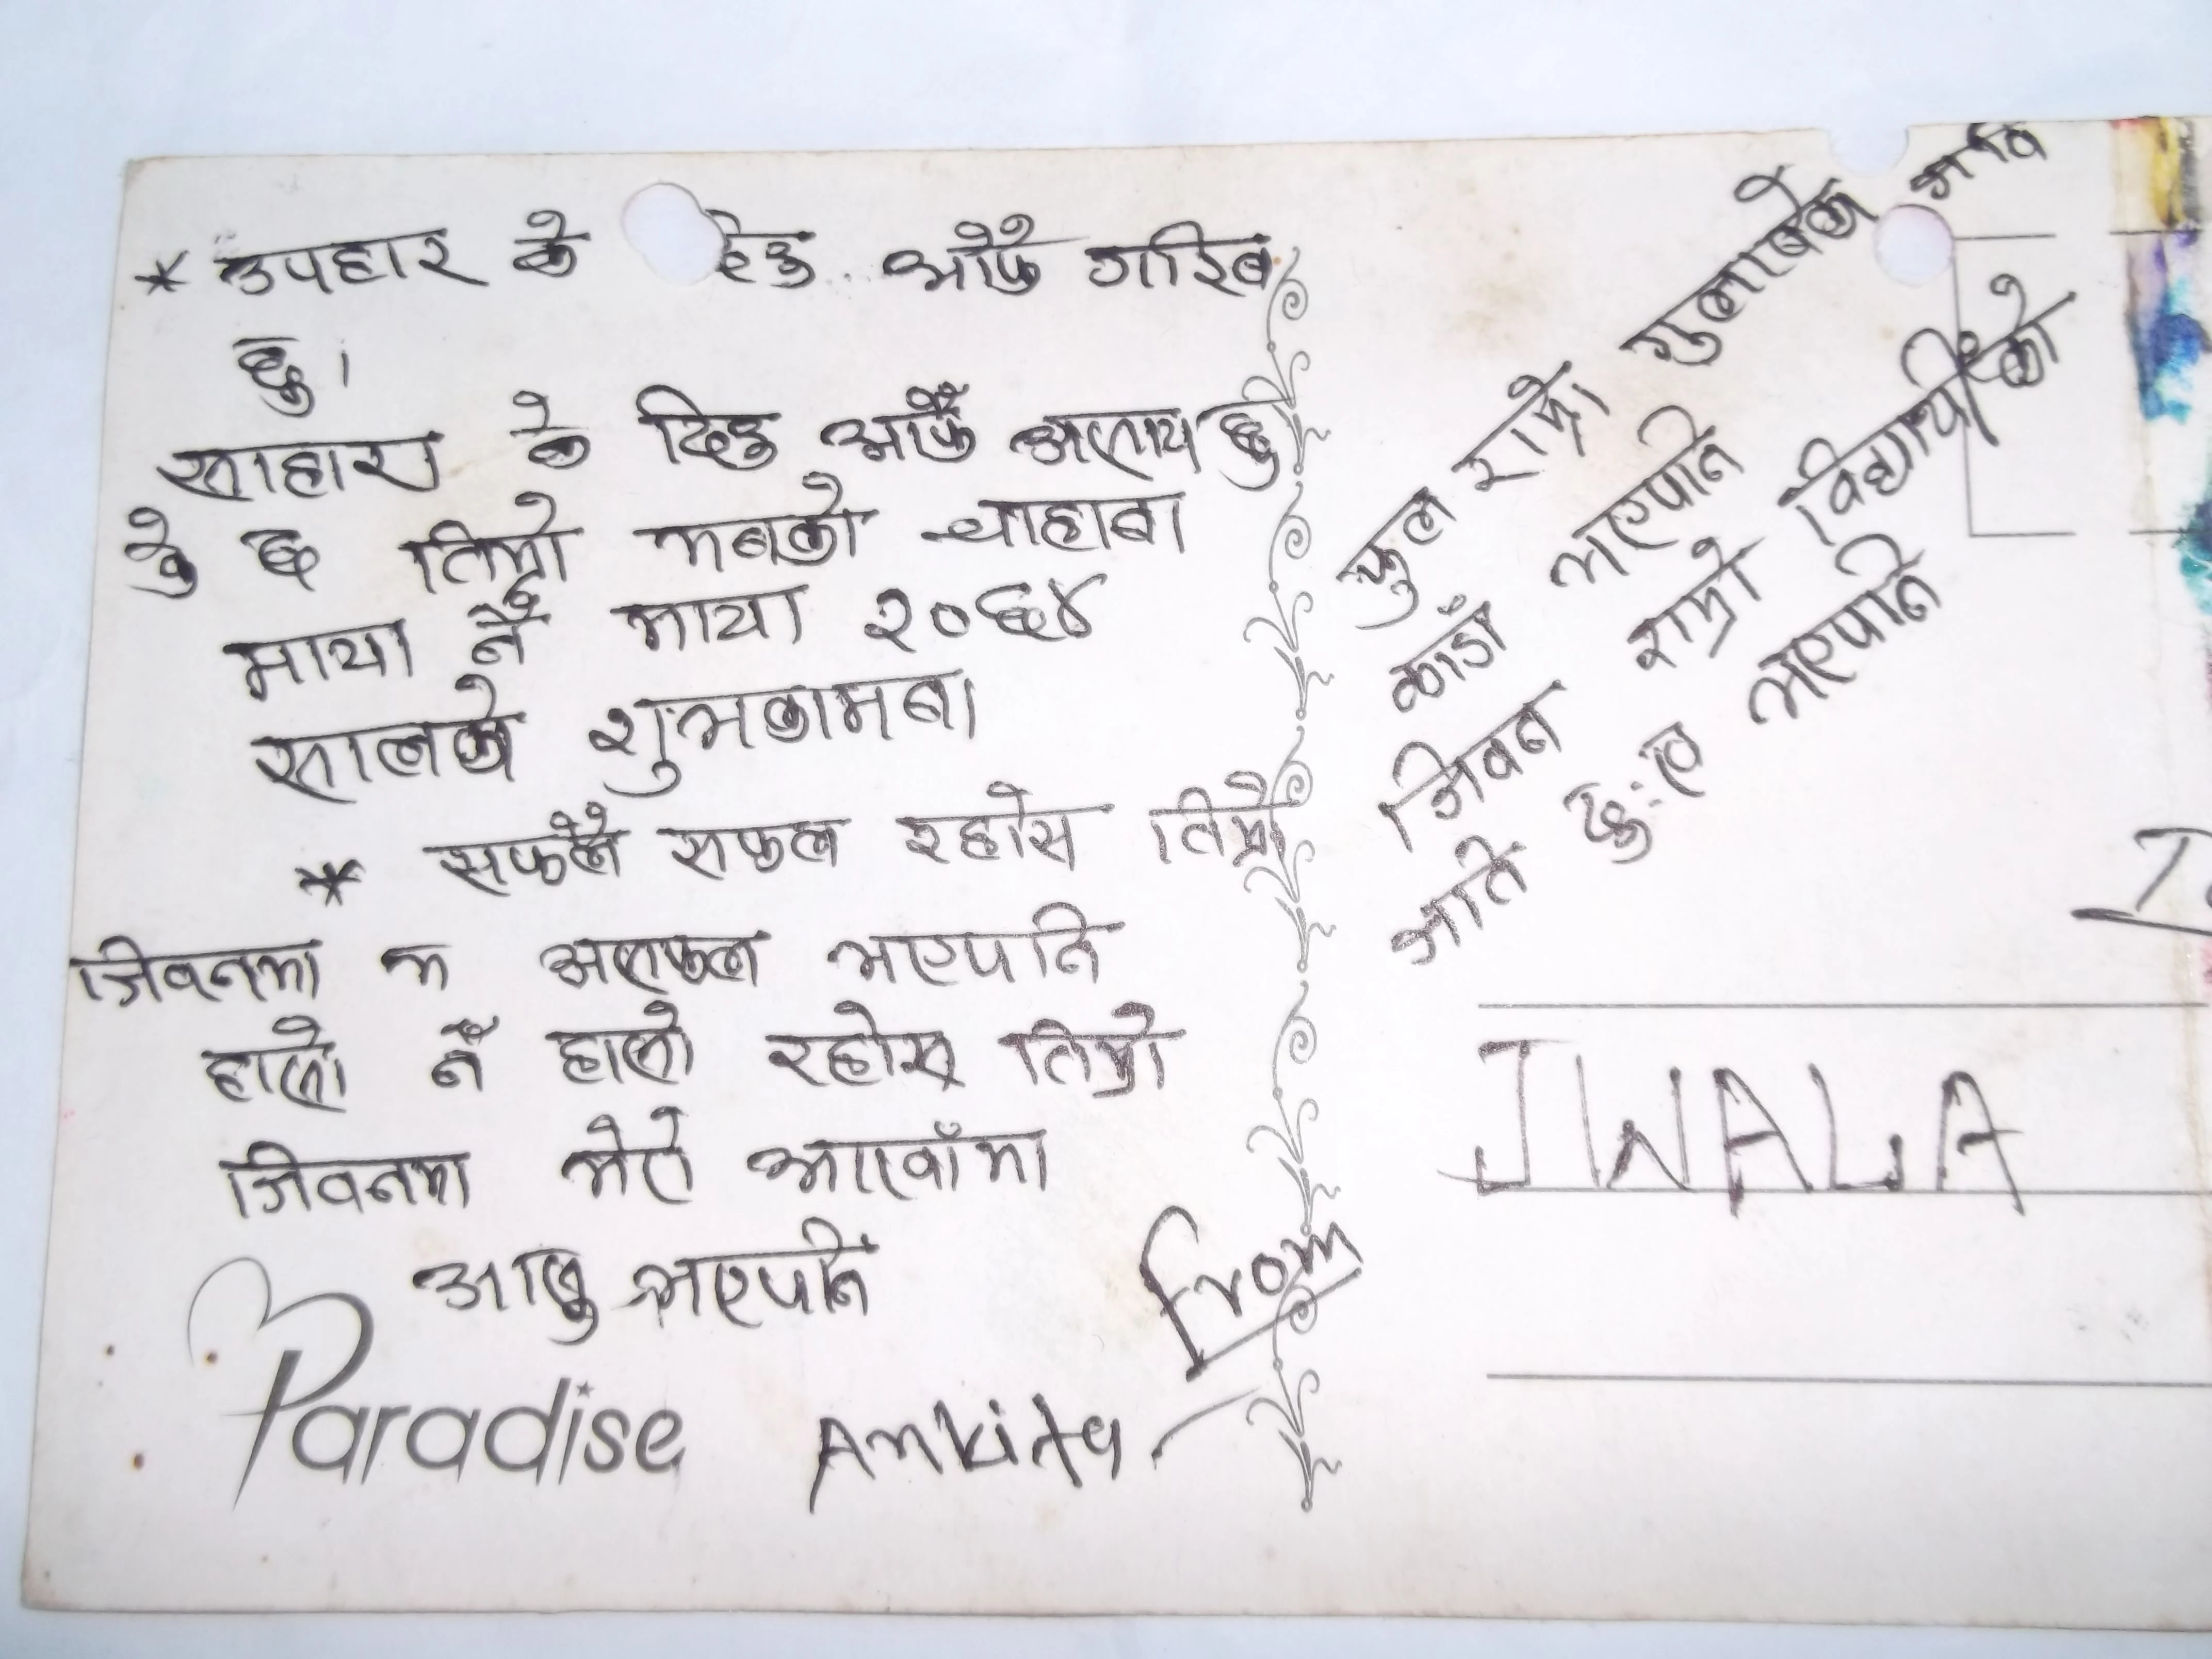 * उपहार के दिउ आफैँ गरिब
छु।
साहारा के दिउ आफैँ असाय छु
के छ तिम्रो मनको चाहाना
माया नै माया २०६४
सालको शुभकामना
* सफलै सफल रहोस तिम्रो
जिवनमा म असफल भएपनि
हासो नै हासो रहोस तिम्रो
जिवनमा मेरो आखाँमा
आसु भएपनि
Paradise
From
Ankita
फुल राम्रो गुलाबको अति
काडाँ भएपनि
जिवन राम्रो विद्यार्थीको
अति दुःख भएपनि
JWALA